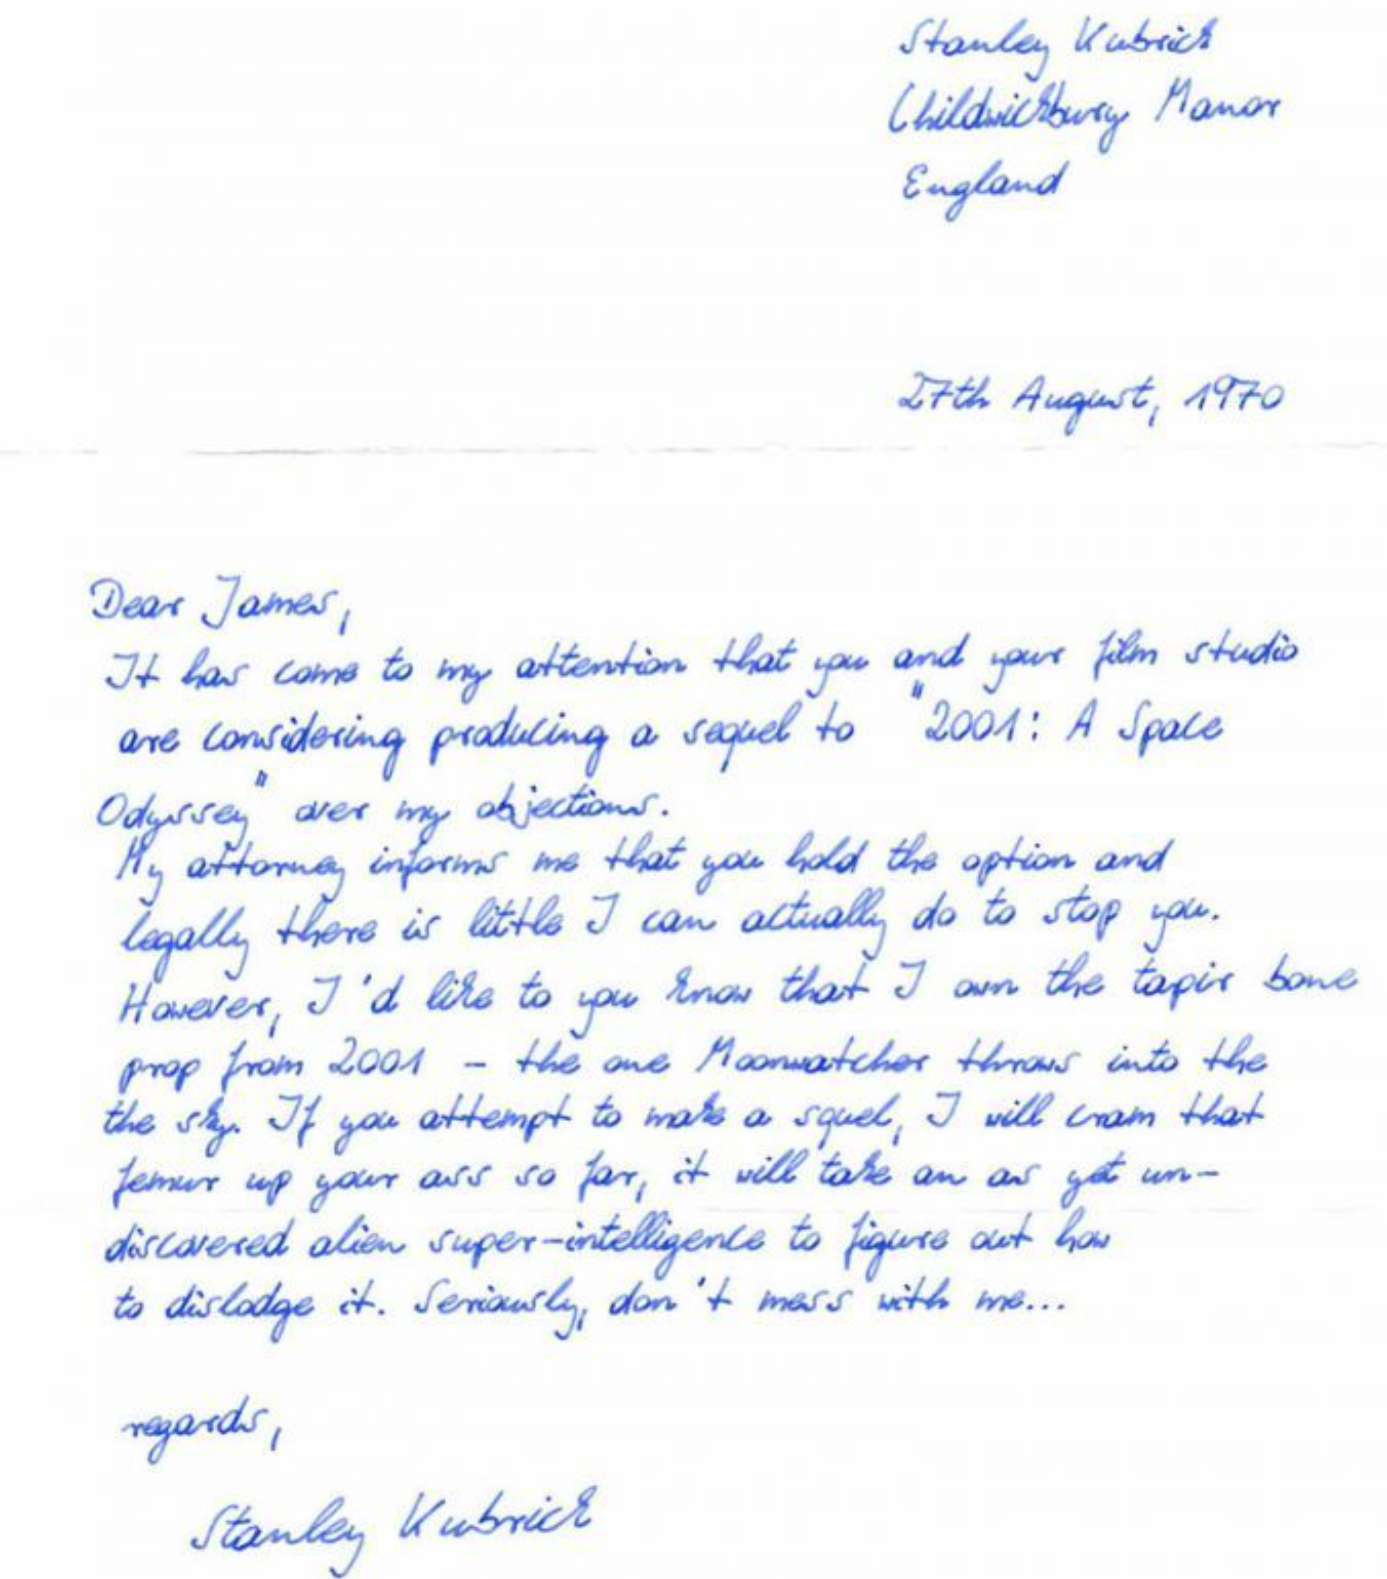 Stanley Kubrick
Childwickbury Manor
England
27th August, 1970
Dear James,
It has come to my attention that you and your film studio
are considering producing a sequel to "2001: A Space
Odyssey" over my objections.
My attorney informs me that you hold the option and
legally there is little I can actually do to stop you.
However, I'd like to you know that I own the tapir bone
prop from 2001 - the one Moonwatcher throws into the
the sky. If you attempt to make a squel, I will cram that
femur up your ass so far, it will take an as yet un-
discovered alien super-intelligence to figure out how
to dislodge it. Seriously, don't mess with me...
regards,
Stanley Kubrick